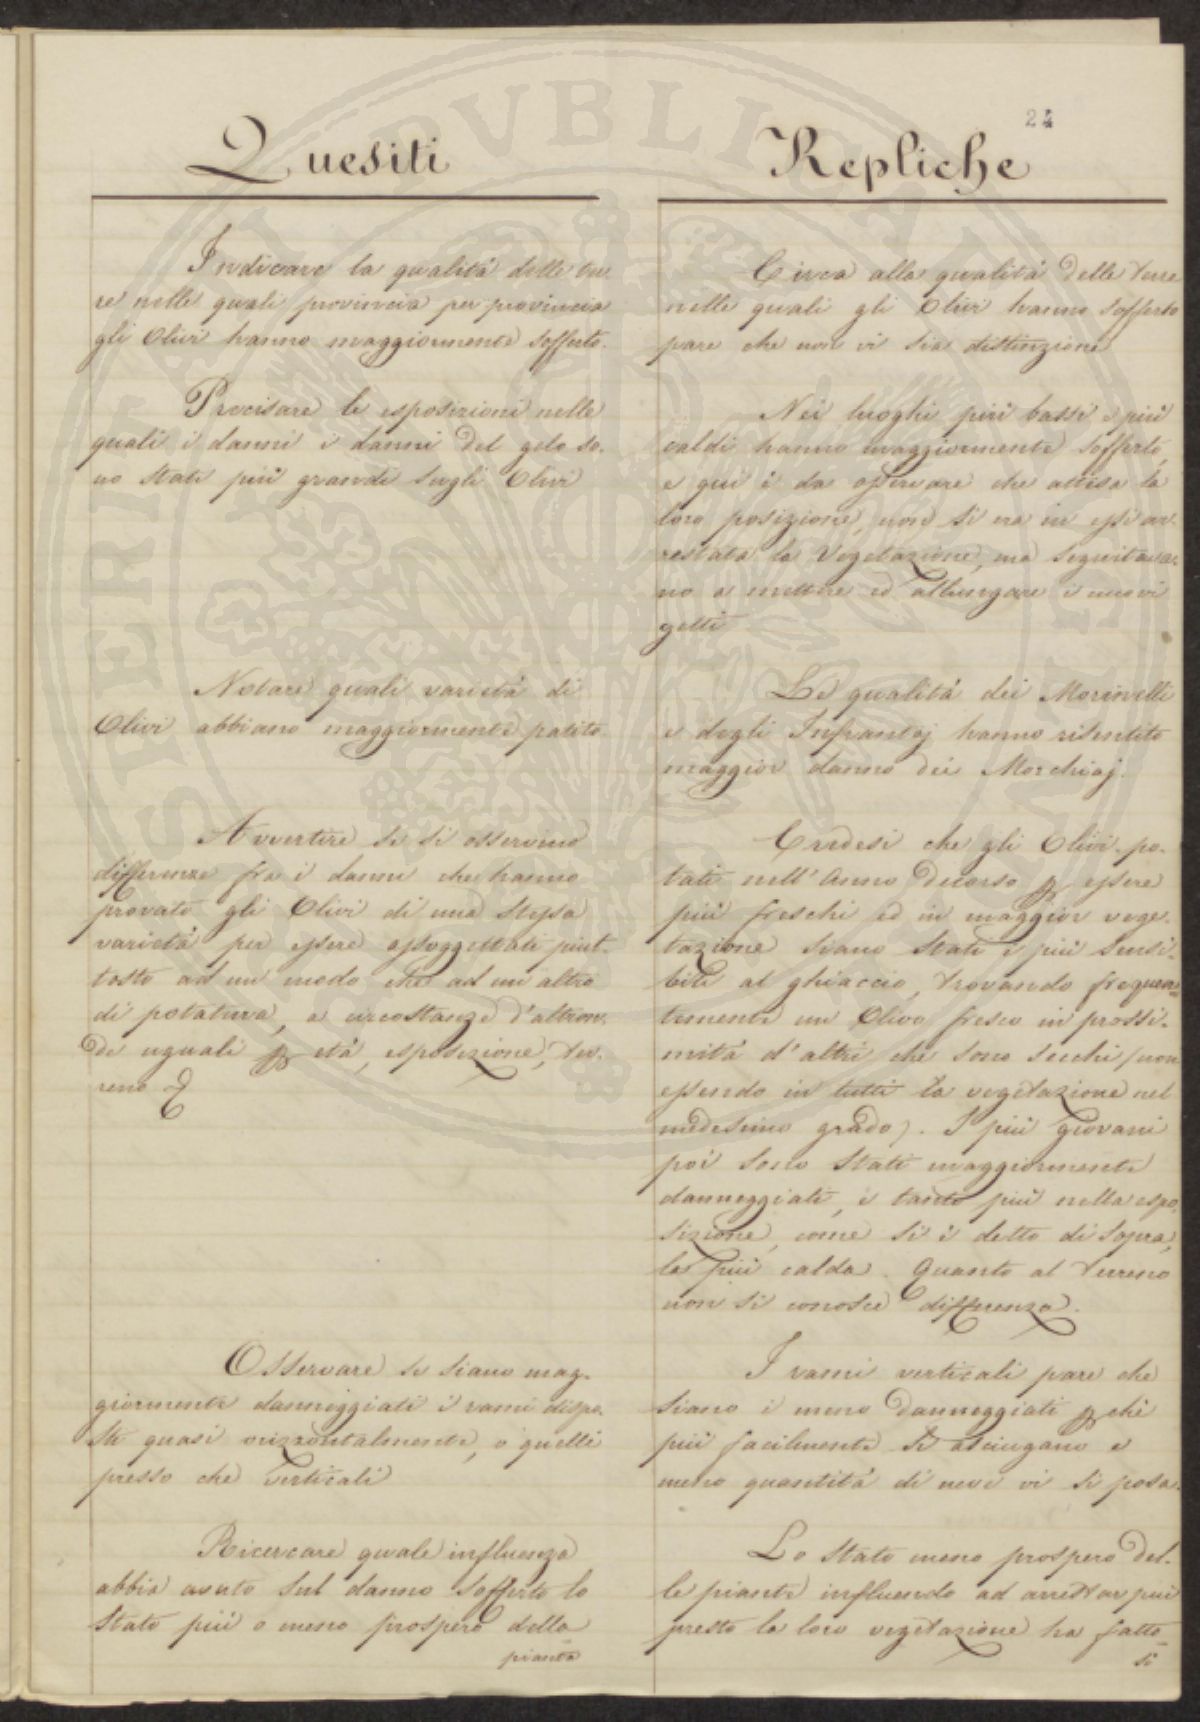 24
Quesiti
Indicare la qualità delle ter-
re nelle quali provincia per provincia
gli Olivi hanno maggiormente sofferto.
Precisare le esposizioni nelle
quali i danni e danni del gelo so-
no stati più grandi sugli Olivi
Notare quali varietà di
Olivi abbiano maggiormente patito
Avvertire se si osservino
differenze fra i danni che hanno
provato gli Olivi di una stessa
varietà per essere assoggettati piut-
tosto ad un modo che ad un'altro
di potatura, a circostanze d'altron-
de uguali p età, esposizione, ter-
reno &
Osservare se siano mag-
giormente danneggiati i rami dispo-
sti quasi orizzontalmente, o quelli
presso che verticali
Ricercare quale influenza
abbia avuto sul danno sofferto lo
stato più o meno prospero della
pianta
Repliche
Circa alla qualità delle terre
nelle quali gli Olivi hanno sofferto
pare che non vi sia distinzione
Nei luoghi più bassi e più
caldi hanno maggiormente sofferto,
e qui è da osservare che attesa la
loro posizione, non si era in essi ar-
restata la vegetazione, ma seguitava-
no a mettere ed allungare i nuovi
getti
Le qualità dei Morinelli
e degli Infrantoj hanno risentito
maggior danno dei Morchiaj.
Credesi che gli Olivi po-
tati nell'Anno decorso p essere
più freschi ed in maggior vege-
tazione siano stati i più sensi-
bili al ghiaccio, trovando frequen-
temente un Olivo fresco in prossi-
mità d'altri che sono secchi (non
essendo in tutti la vegetazione nel
medesimo grado). I più giovani
poi sono stati maggiormente
danneggiati, e tanto più nella espo-
sizione, come si è detto di sopra,
la più calda. Quanto al terreno
non si conosce differenza.
I rami verticali pare che
siano i meno danneggiati pchè
più facilmente si asciugano e
meno quantità di neve vi si posa.
Lo stato meno prospero del-
le piante influendo ad arrestar più
presto la loro vegetazione ha fatto
sì